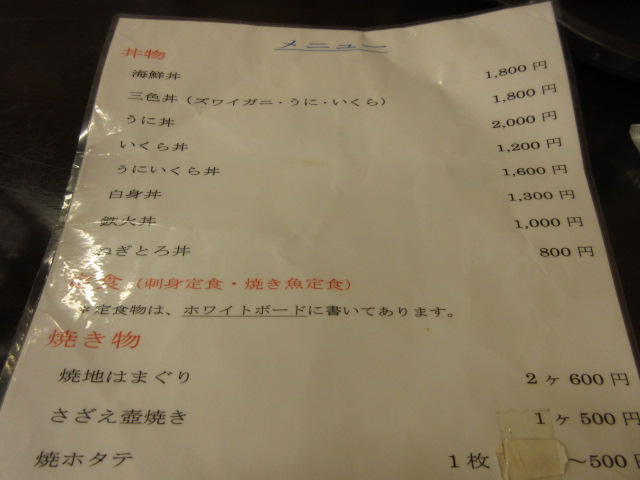 メニュー
丼物
海鮮丼 1,800 円
三色丼(ズワイガニ・うに・いくら) 1,800 円
うに丼 2,000 円
いくら丼 1,200 円
うにいくら丼 1,600 円
白身丼 1,300 円
鉄火丼 1,000 円
ねぎとろ丼 800 円
食(刺身定食・焼き魚定食)
定食物は、ホワイトボードに書いてあります。
焼き物
焼地はまぐり 2 ヶ 600 円
さざえ壺焼き 1 ヶ 500 円
焼ホタテ 1 枚 ～500 円